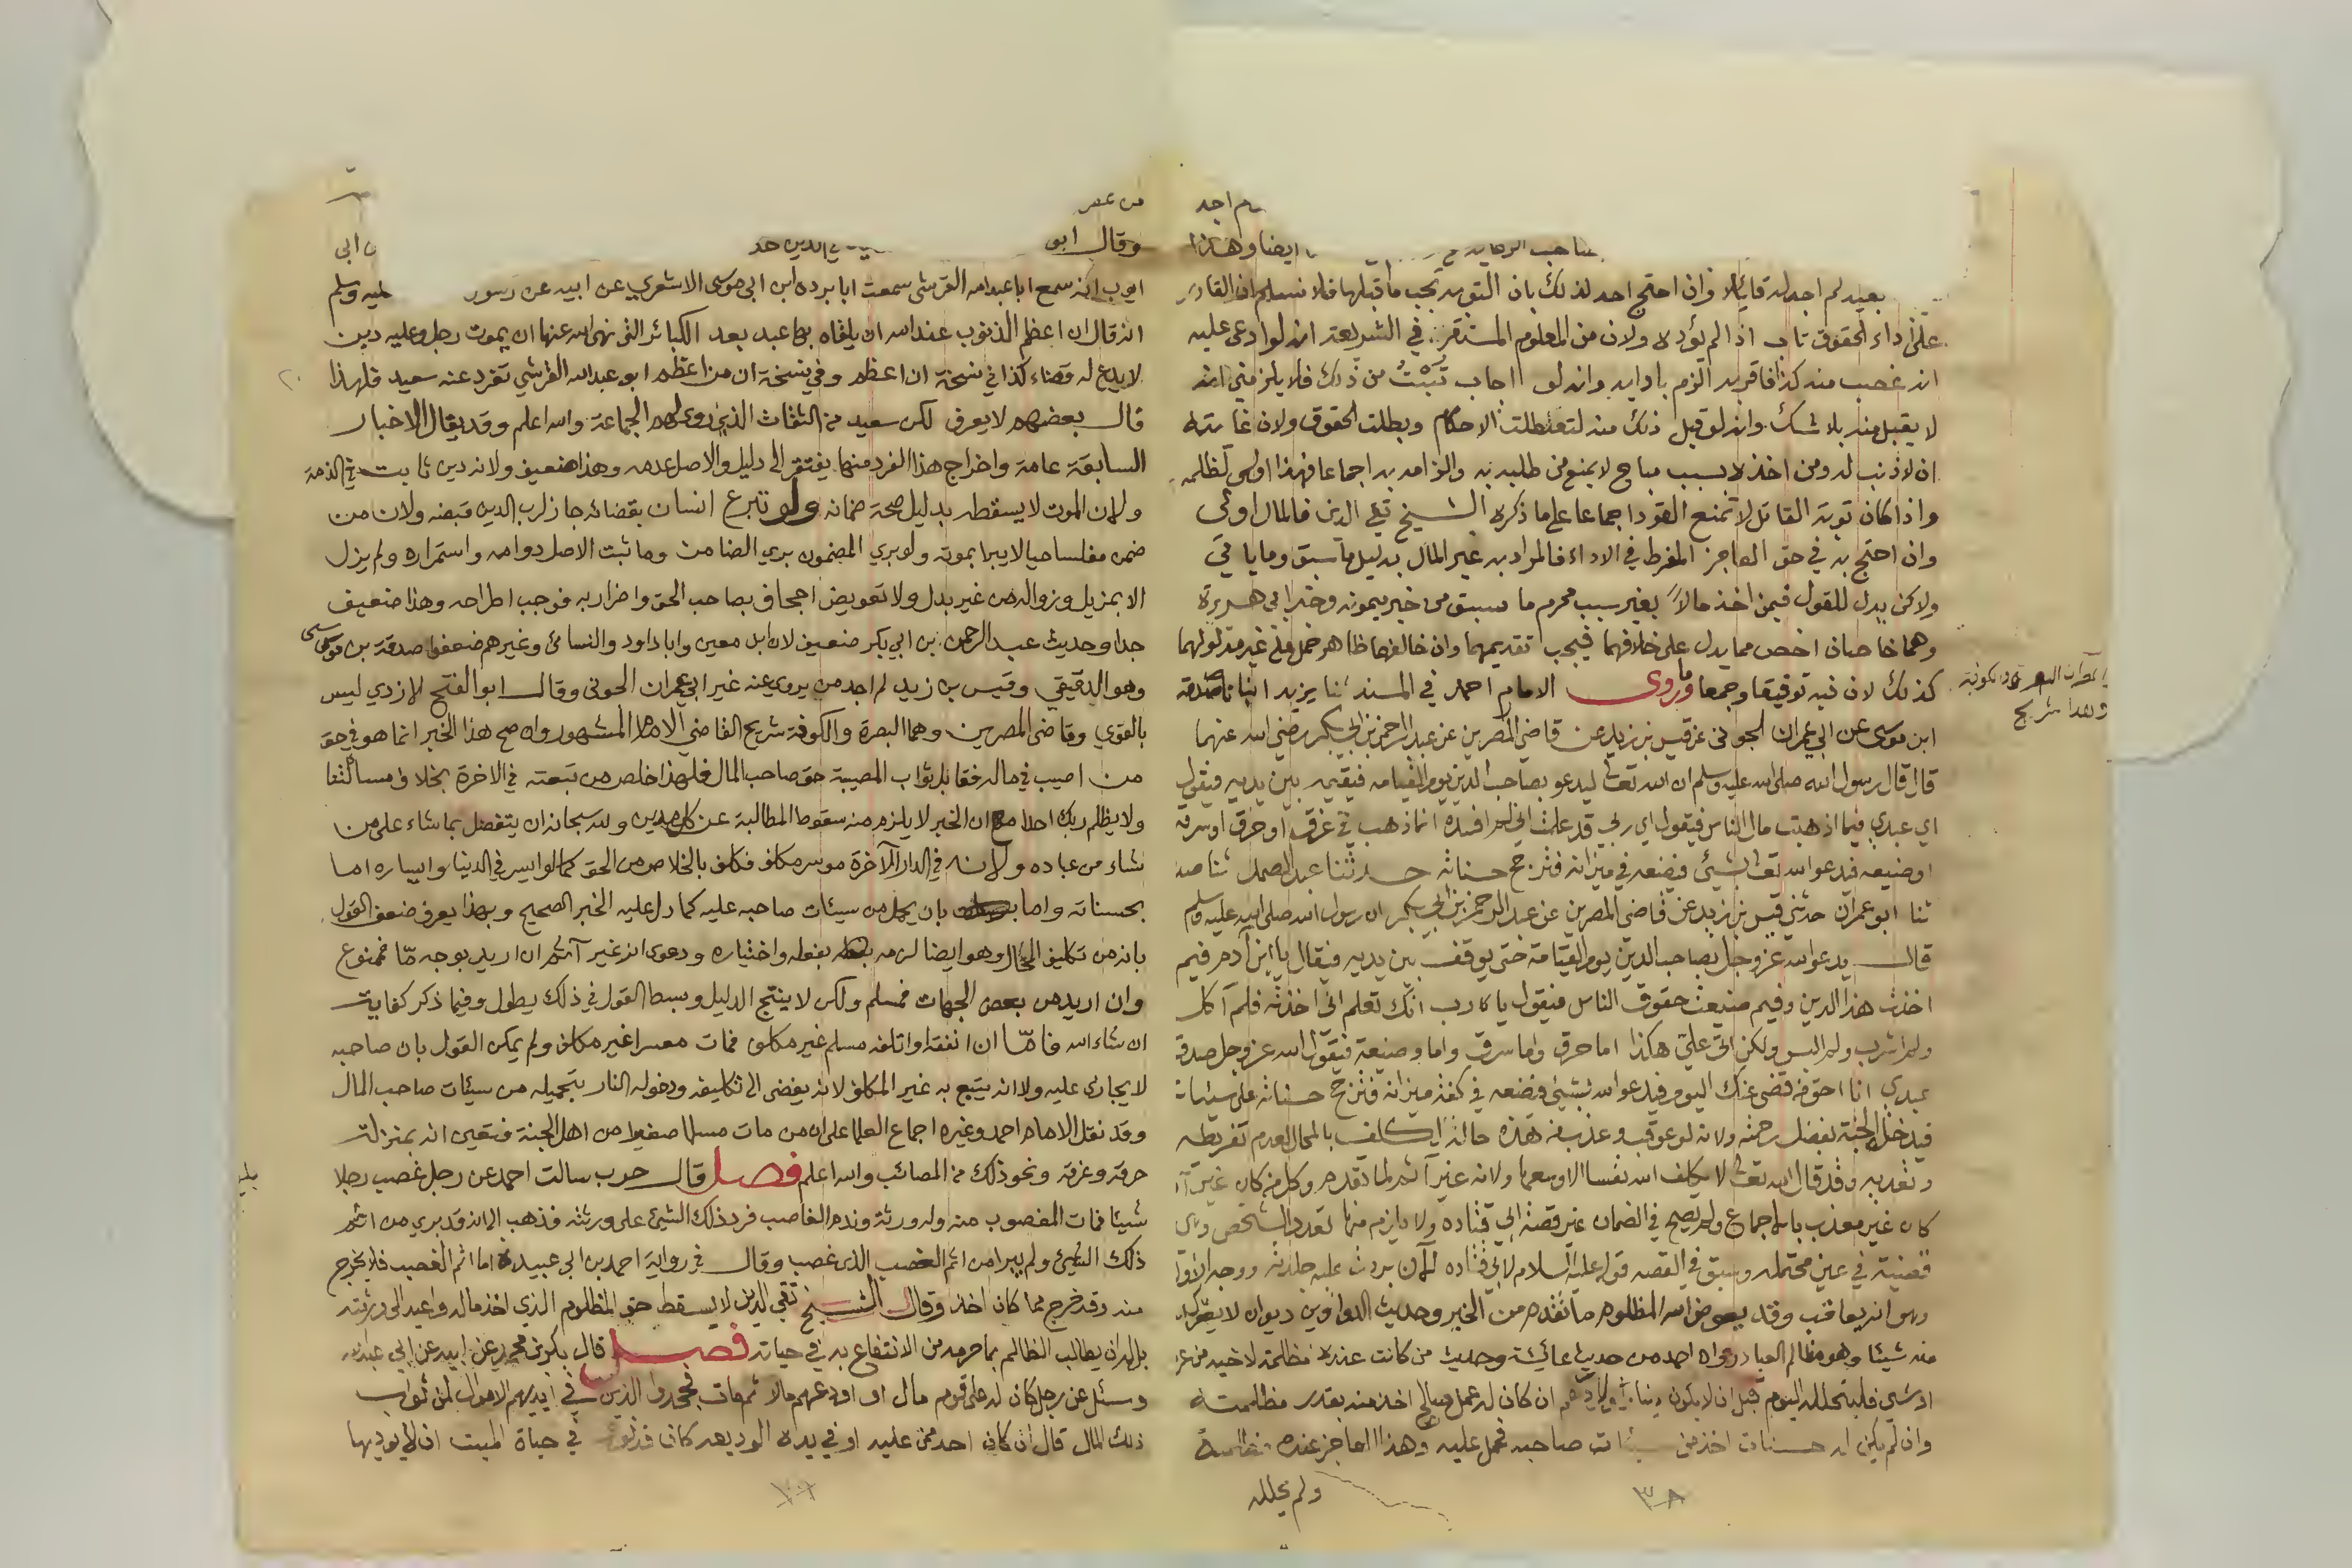 م اجد
صاحب الرعاية ايضا وهذا
بعيد لم اجد له قائلا وان احتج احد لذلك بان التوبة تجب ما قبلها فلا نسلم ان القادر
على اداء الحقوق تاب اذا لم يؤده ولان من المعلوم المستقر في الشريعة انه لو ادعى عليه
انه غصب منه كذا فاقر به الزم بادايه وانه لو اجاب تبت من ذلك فلا يلزمني انه
لا يقبل منه بلا شك وانه لو قبل ذلك منه لتعطلت الاحكام وبطلت الحقوق ولان غايته
ان لا ذنب له ومن اخذ لا بسبب مباح لا يمنع من طلبه به والزامه به اجماعا فهذا اولى لظلمه
واذا كان توبة القاتل لا تمنع القود اجماعا على ما ذكره الشيخ تقي الدين فالمال اولى
وان احتج به في حق العاجز المفرط في الاداء فالمراد به غير المال بدليل ما سبق وما ياتي
ولا كن يدل للقول فيمن اخذ مالا بغير سبب محرم ما سبق من خبر ميمونة وخبر ابي هريرة
وهما خاصان اخص مما يدل على خلافهما فيجب تقديمهما وان خالفهما ظاهر حمل على غير مدلولهما
كذلك لان فيه توفيقا وجمعا وما روى الامام احمد في المسند ثنا يزيد انبانا صدقة
ابن موسى عن ابي عمران الجوني عن قيس بن زيد عن قاضي المصرين عن عبد الرحمن بن ابي بكر رضي الله عنهما
قال قال رسول الله صلى الله عليه وسلم ان الله تعالى ليدعو بصاحب الدين يوم القيامة فيقيمه بين يديه فيقول
اي عبدي فيما اذهبت مال الناس فيقول اي ربي قد علمت اني لم افسده انما ذهب في غرق او حرق او سرقة
او ضيعة فيدعو الله تعالى بشيئ فيضعه في ميزانه فترجح حسناته حدثنا عبد الصمد ثنا صدقة
ثنا ابو عمران حدثني قيس بن زيد عن قاضي المصرين عن عبد الرحمن بن ابي بكر ان رسول الله صلى الله عليه وسلم
قال يدعو الله عز وجل بصاحب الدين يوم القيامة حتى يوقف بين يديه فيقال يا ابن آدم فيم
اخذت هذا الدين وفيم ضيعت حقوق الناس فيقول يا رب انك تعلم اني اخذته فلم آكل
ولم اشرب ولم البس ولكن اتى علي هكذا اما حرق واما سرق واما وضيعة فيقول الله عز وجل صدق
عبدي انا احق من قضى عنك اليوم فيدعو الله بشيئ فيضعه في كفة ميزانه فترجح حسناته على سيئاته
فيدخل الجنة بفضل رحمته ولانه لو عوقب وعذب في هذه حاله لكلف بالمحال لعدم تفريطه
وتعديه وقد قال الله تعالى لا يكلف الله نفسا الا وسعها ولانه غير آثم لما تقدم وكل من كان غير آثم
كان غير معذب بالاجماع ولم يصح في الضمان غير قصة ابي قتاده ولا يلزم منها تعدد الشخص
قضية في عين محتملة وسبق في القصة قوله عليه السلام لابي قتاده الآن بردت عليه جلدته ووجه الاول
وهو انه يعاقب وقد يعوض الله المظلوم ما تقدم من الخبر وحديث الدواوين ديوان لا يترك
منه شيئا وهو مظالم العباد رواه احمد من حديث عائشة وحديث من كانت عنده مظلمة لاخيه من عرض
او شيئ فليتحلله اليوم قبل ان لا يكون دينار ولا درهم ان كان له عمل صالح اخذ منه بقدر مظلمته
وان لم يكن له حسنات اخذ من سيئات صاحبه فحمل عليه وهذا العاجز عنده مظلمة
ولم يحلله
٣٨
وهذا شريح
من عصر
وقال ابو في الدين حد ابي
ايوب انه سمع ابا عبد الله القرشي سمعت ابا برده ابن ابي موسى الاشعري عن ابيه عن رسول عليه وسلم
انه قال ان اعظم الذنوب عند الله ان يلقاه بها عبد بعد الكبائر التي نهى الله عنها ان يموت رجل وعليه دين
لا يدع له قضاء كذا في نسخة ان اعظم وفي نسخة ان من اعظم ابو عبد الله القرشي تفرد عنه سعيد فلهذا
قال بعضهم لا يعرف لكن سعيد من الثقات الذي روى لهم الجماعة والله اعلم وقد يقال الاخبار
السابقة عامة واخراج هذا الفرد منها يفتقر الى دليل والاصل عدمه وهذا ضعيف ولانه دين ثابت في الذمة
ولان الموت لا يسقطه بدليل صحة ضمانه ولو تبرع انسان بقضائه جاز لرب الدين قبضه ولان من
ضمن مفلسا حيا لا يبرا بموته ولو بري المضمون بري الضامن وما ثبت الاصل دوامه واستمراره ولم يزل
الا بمزيل وزواله من غير بدل ولا تعويض اجحاف بصاحب الحق واضرار به فوجب اطراحه وهذا ضعيف
جدا وحديث عبد الرحمن بن ابي بكر ضعيف لان ابن معين وابا داود والنسائي وغيرهم ضعفوا صدقة بن موسى
وهو الدقيقي وقيس بن زيد لم اجد من يروي عنه غير ابي عمران الجوني وقال ابو الفتح الازدي ليس
بالقوي وقاضي المصرين وهما البصرة والكوفة شريح القاضي الامام المشهور وان صح هذا الخبر انما هو في حق
من اصيب في ماله فقابل ثواب المصيبة حق صاحب المال فلهذا خلص من تبعته في الاخرة بخلاف مسالتنا
ولا يظلم ربك احدا مع ان الخبر لا يلزم منه سقوط المطالبة عن كل مدين ولله سبحانه ان يتفضل بما شاء على من
شاء من عباده ولانه في الدار الآخرة موسر مكلف فكلف بالخلاص من الحق كما لو ايسر في الدنيا وايساره اما
بحسناته واما بان يحمل من سيئات صاحبه عليه كما دل عليه الخبر الصحيح وبهذا يعرف ضعف القول
بانه من تكليف المحال وهو ايضا لزمه بفعله واختياره ودعوى انه غير آثم ان اريد بوجه ما فممنوع
وان اريد من بعض الجهات فمسلم ولكن لا ينتج الدليل وبسط القول في ذلك يطول وفيما ذكر كفاية
ان شاء الله فاما ان انفقه او اتلفه مسلم غير مكلف فمات معسرا غير مكلف ولم يمكن القول بان صاحبه
لا يجازى عليه ولا انه يتبع به غير المكلف لانه يفضي الى تكليفه ودخوله النار بتحميله من سيئات صاحب المال
وقد نقل الامام احمد وغيره اجماع العلما على ان من مات مسلما صغيرا من اهل الجنة فتعين انه بمنزلة
حرقه وغرقه ونحو ذلك من المصائب والله اعلم فصل قال حرب سالت احمد عن رجل غصب رجلا
شيئا فمات المغصوب منه وله ورثة وندم الغاصب فرد ذلك الشيئ على ورثته فذهب الى انه قد بري من اثم
ذلك الشيئ ولم يبرا من اثم الغصب الذي غصب وقال في رواية احمد بن ابي عبيدة اما اثم الغصب فلا يخرج
منه وقد خرج مما كان اخذ وقال الشيخ تقي الدين لا يسقط حق المظلوم الذي اخذ ماله واعيد الى ورثته
بل له ان يطالب الظالم بما حرمه من الانتفاع به في حياته فصل قال بكر بن محمد عن ابيه عن ابي عبد الله
وسئل عن رجل كان له على قوم مال او اودعهم مالا ثم مات فجحد الذين في ايديهم الاموال لمن ثواب
ذلك المال قال ان كان احد ممن عليه او في يده الوديعه كان قد نوى في حياة الميت ان لا يوديها